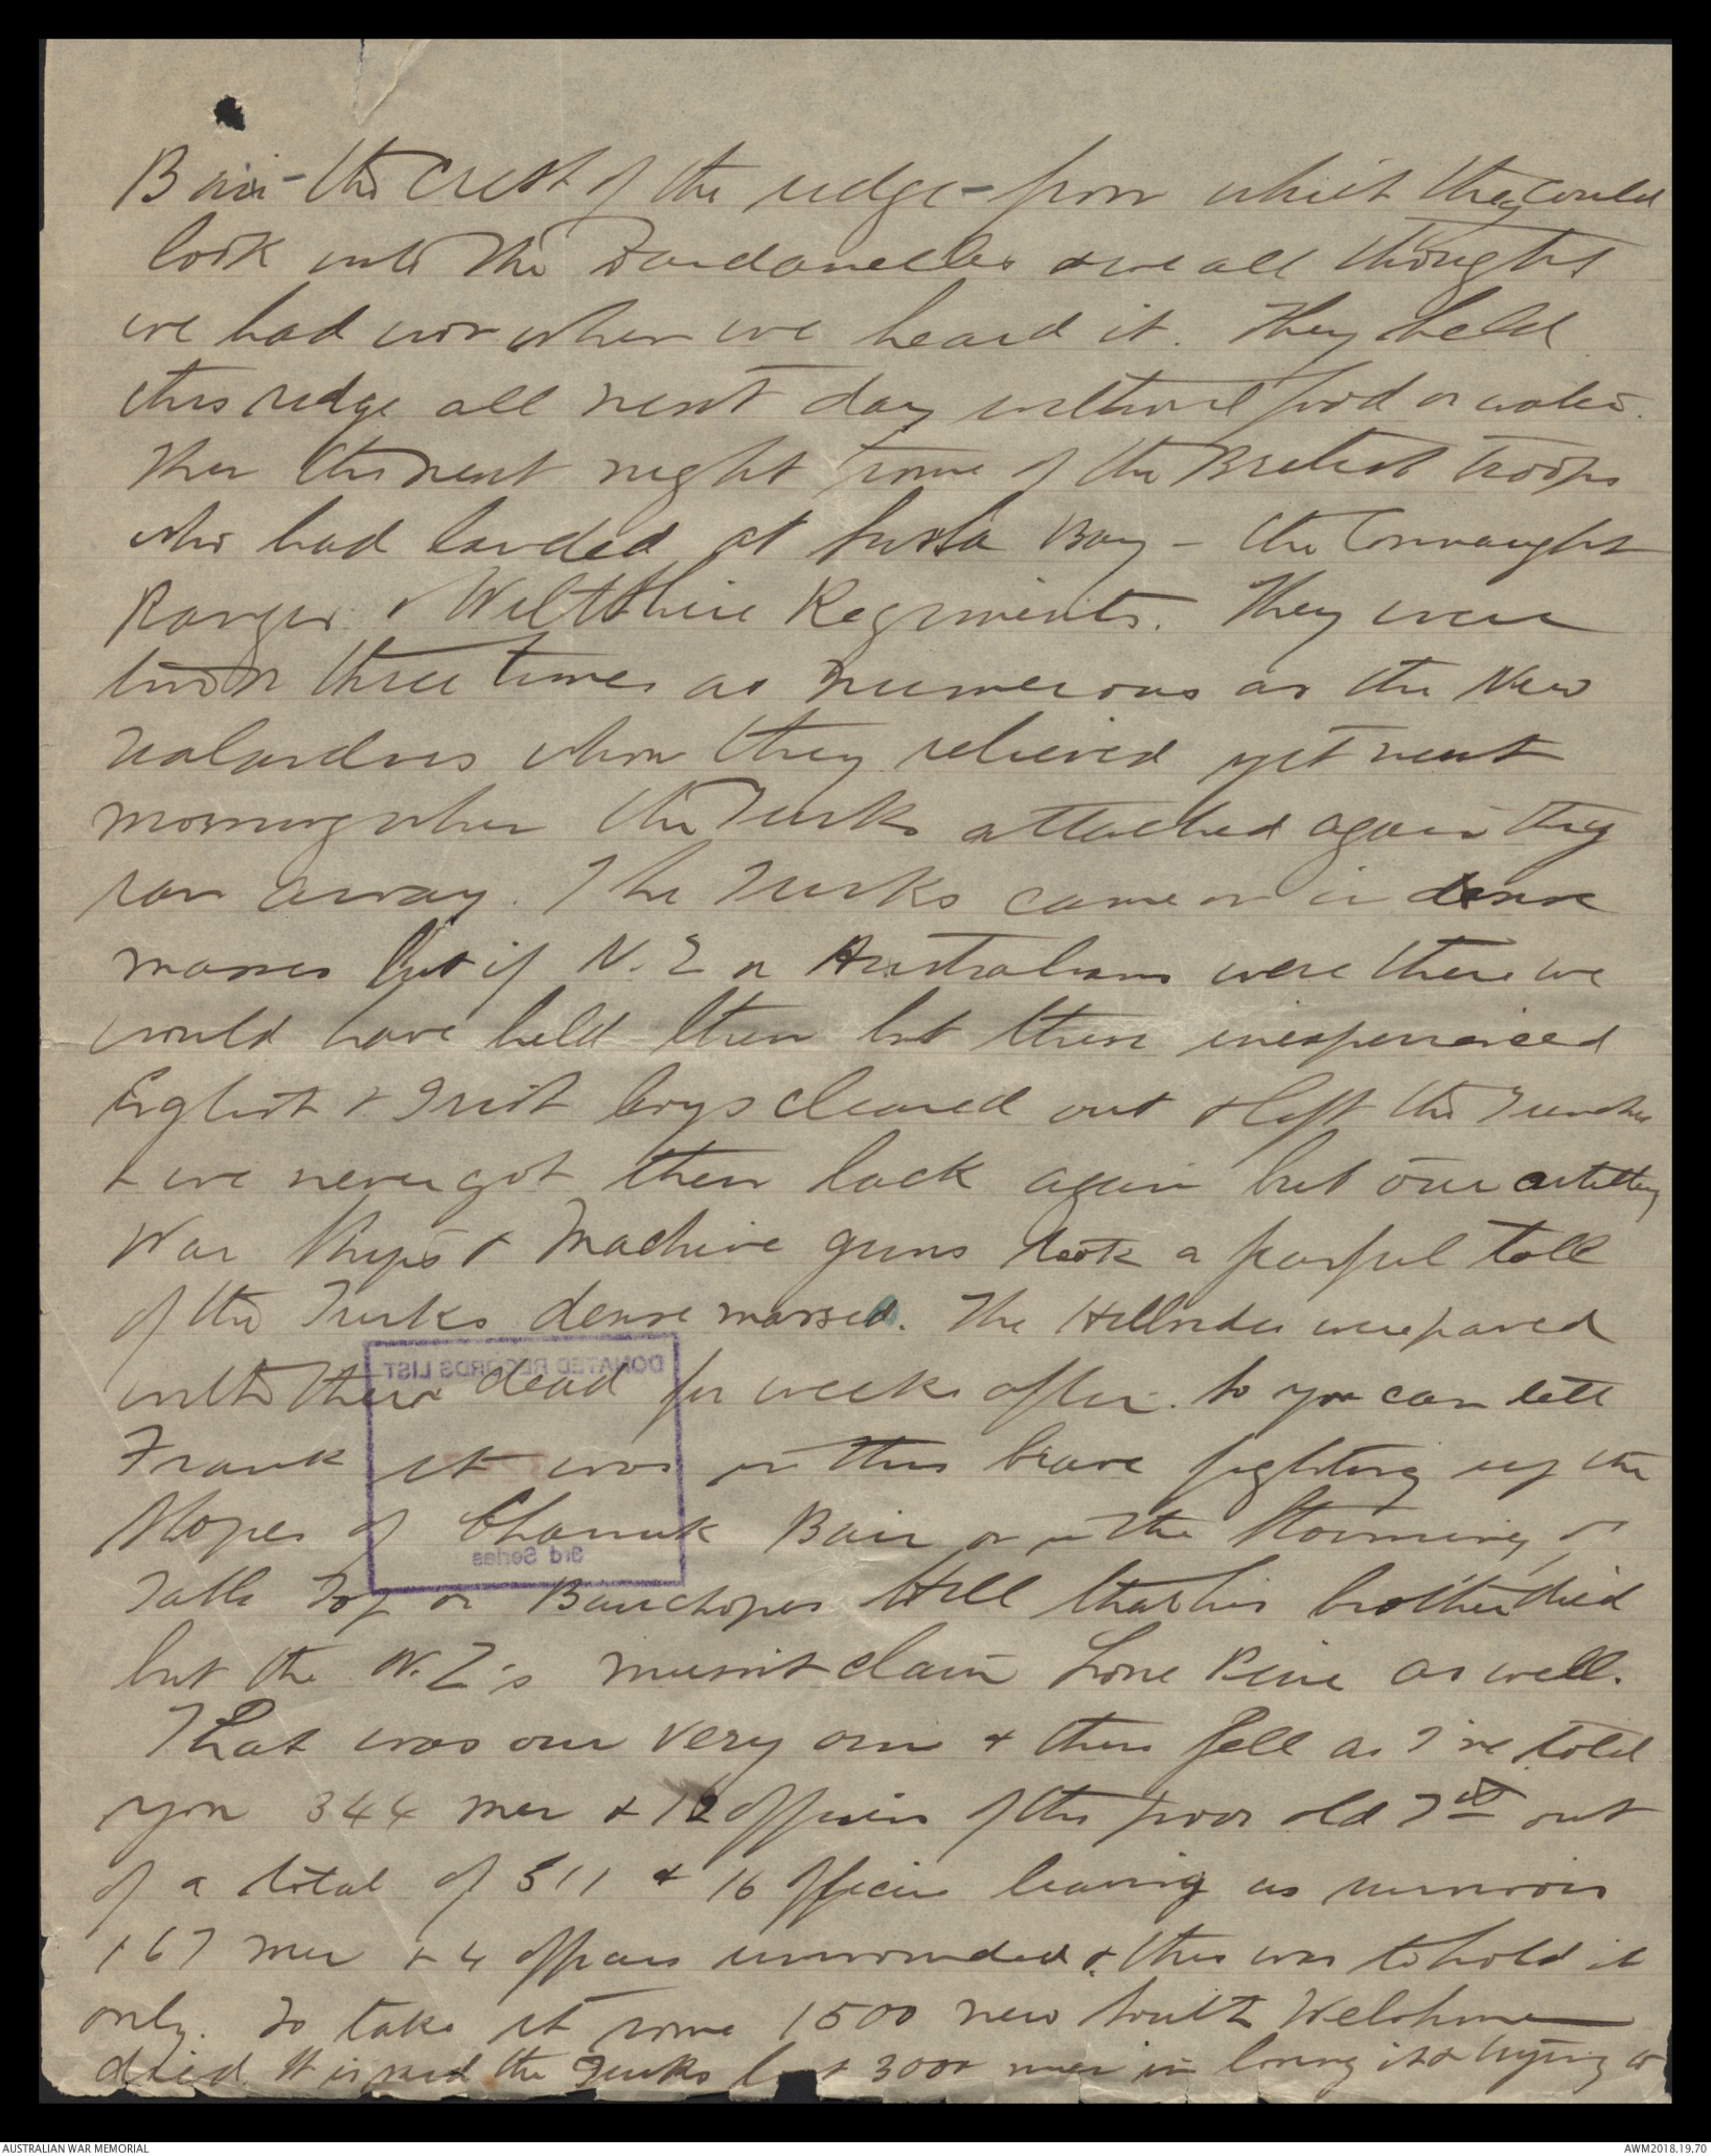 Bair - the crest of the ridge - from which they could
look into the Dardanelles & we all thought
we had won when we heard it. They held
this ridge all next day without food or water.
Then the next night some of the British troops
who had landed at Suvla Bay - the Connaught
Rangers & Wiltshire Regiments. They were
two or three times as numerous as the New
Zealanders whom they relieved yet next
morning when the Turks attacked again they
ran away. The Turks came on in dense
masses but if N.Z or Australians were there we
would have held them but these inexperienced
English & Irish boys cleared out & left the Trenches
& we never got them back again but our artillery
War Ships & Machine guns took a fearful toll
of the Turks dense masses. The Hillsides were paved
with their dead for weeks after. So you can tell
Frank it was in this brave fighting up the
Slopes of Chanuk Bair or in the storming of
Table Top or Bauchopes Hill that his brother died
but the N.Z's mustnt claim Lone Pine as well.
That was our very own & there fell as I've told
you 344 men & 12 officers of the poor old 7th out
of a total of 511 & 16 officers leaving as survivors
167 men & 4 officers unwounded & this was to hold it
only. To take it some 1500 New South Welshmen
died. It is said the Turks lost 3000 men in losing it & trying to
DONATED RECORDS LIST
3rd Series
AUSTRALIAN WAR MEMORIAL
AWM2018.19.70